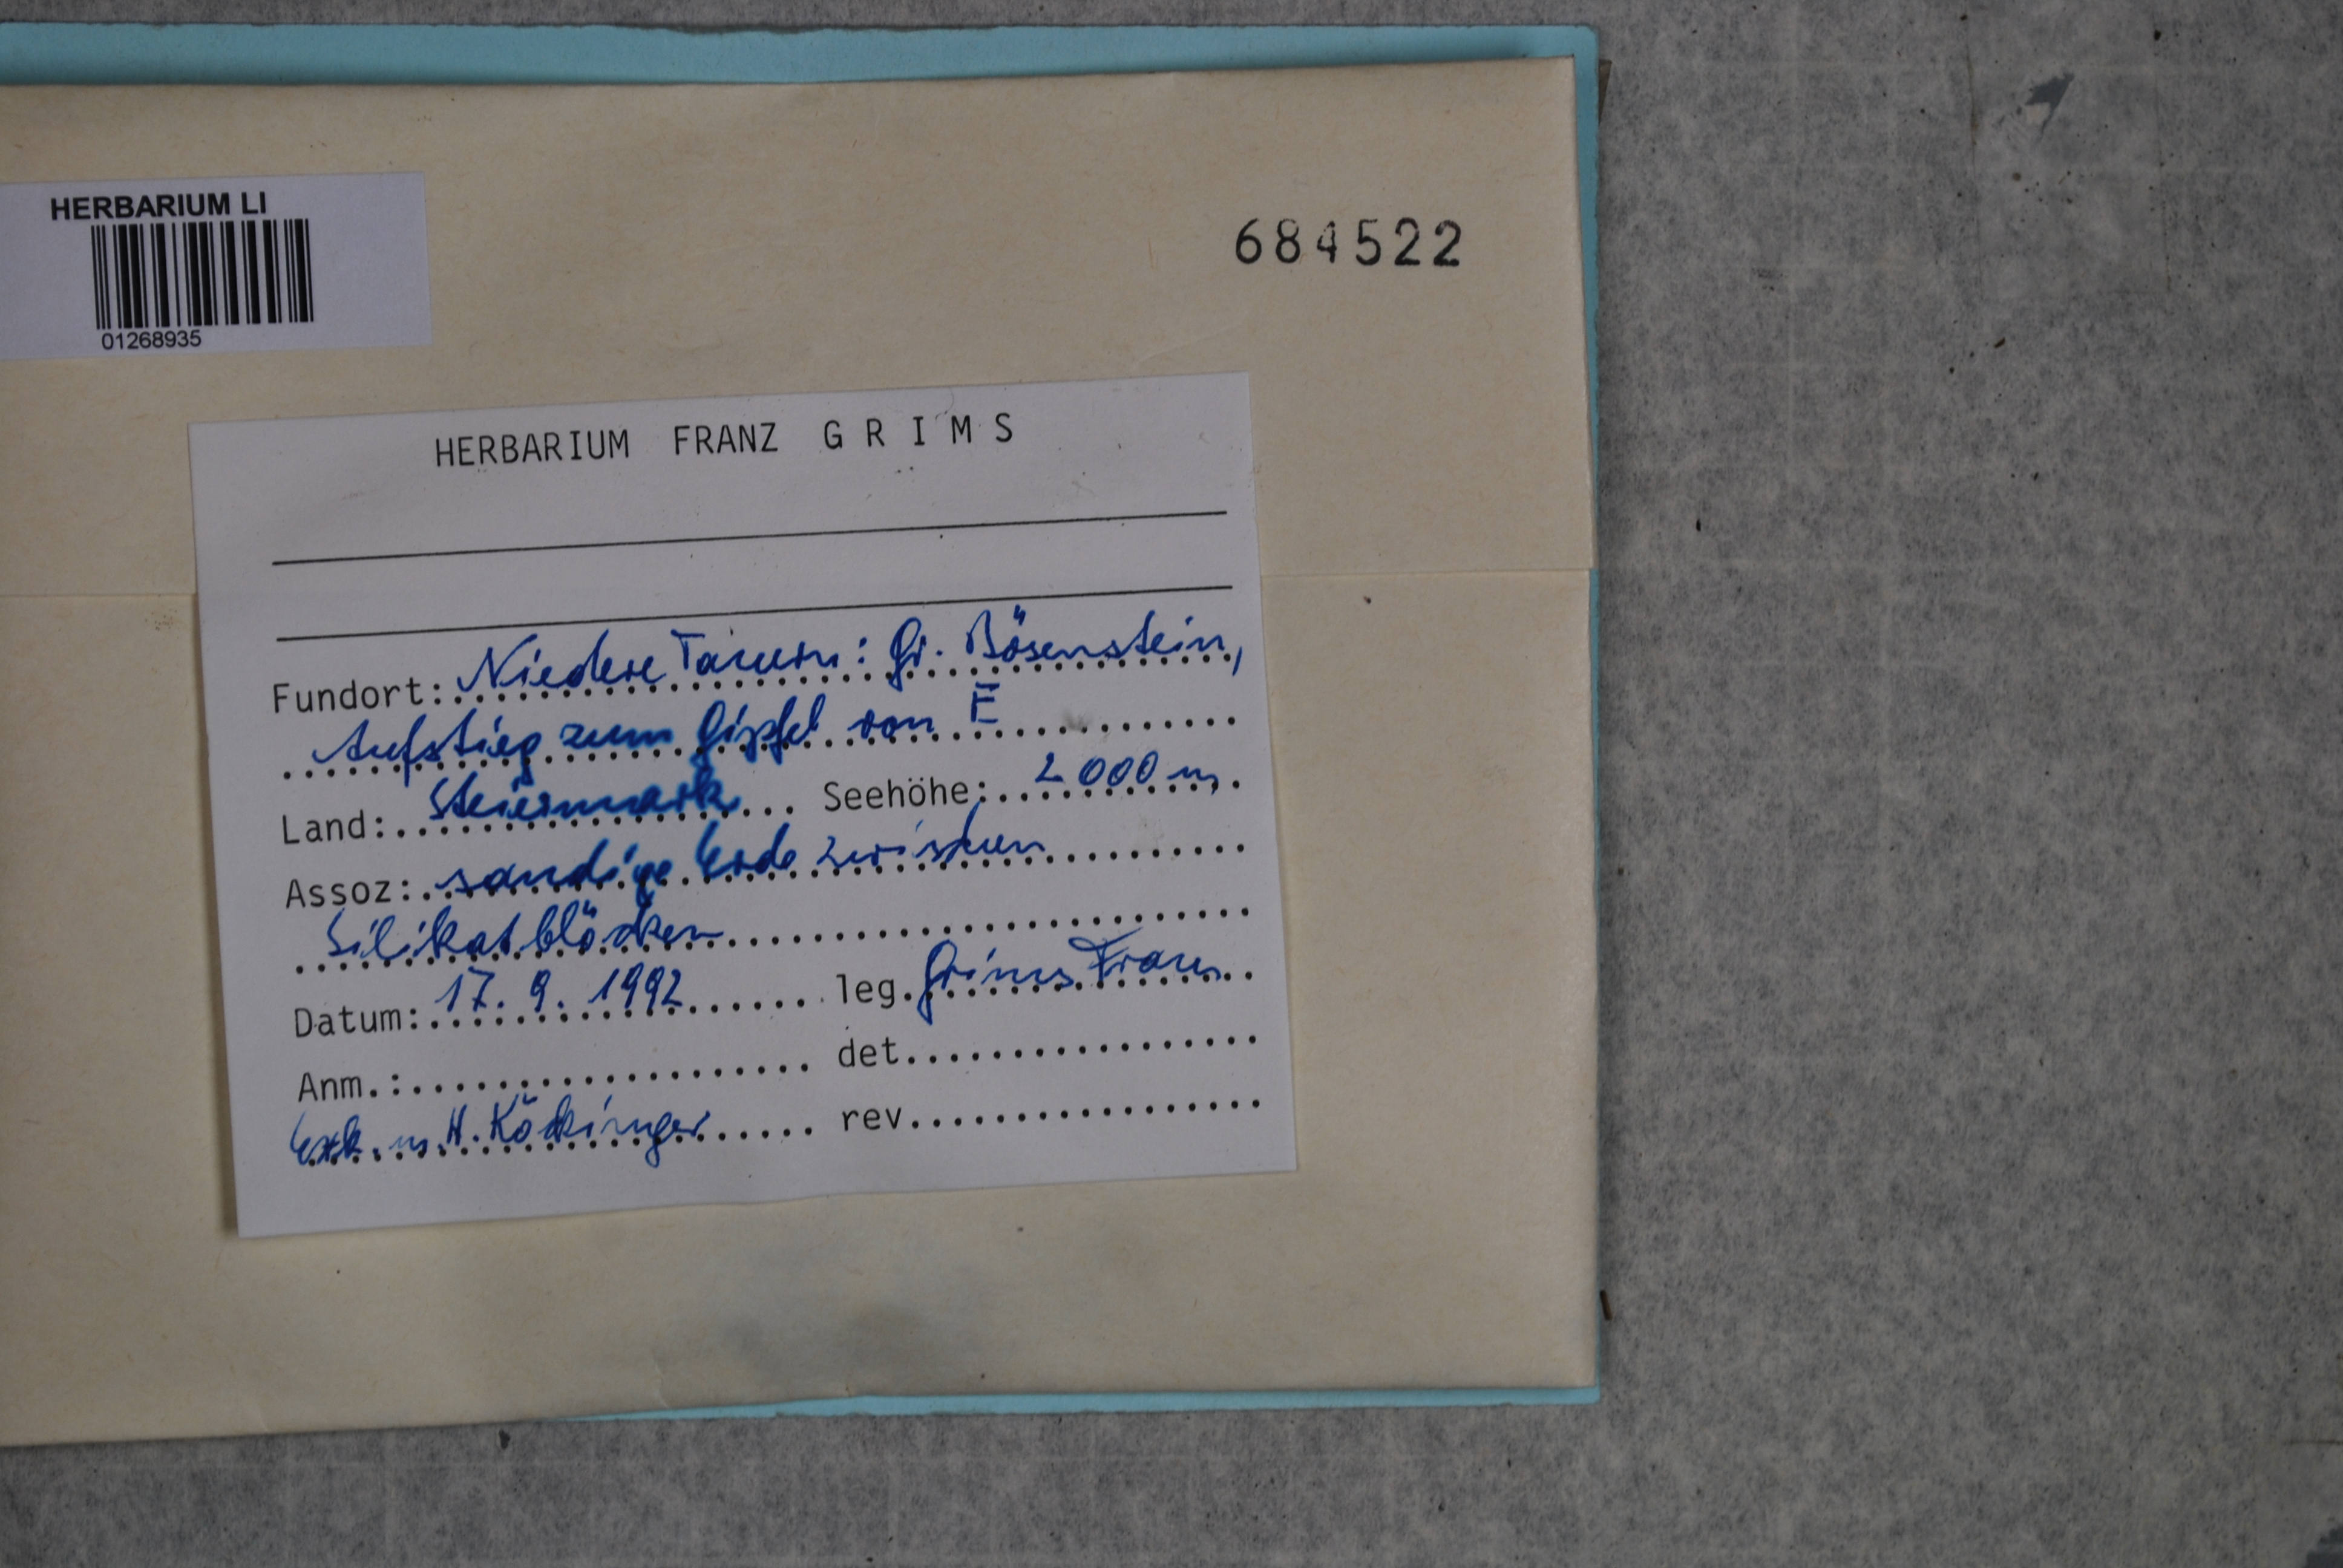 HERBARIUM LI
01268935
684522
HERBARIUM FRANZ GRIMS
Fundort: Niedere Tauern: Gr. Bösenstein,
Aufstieg zum Gipfel von E
Land: Steiermark Seehöhe: 2000 m
Assoz: sandige Erde zwischen
Silikatblöcken
Datum: 17. 9. 1992 leg. Grims Franz
Anm.: det.
Exk. m. H. Köckinger rev.